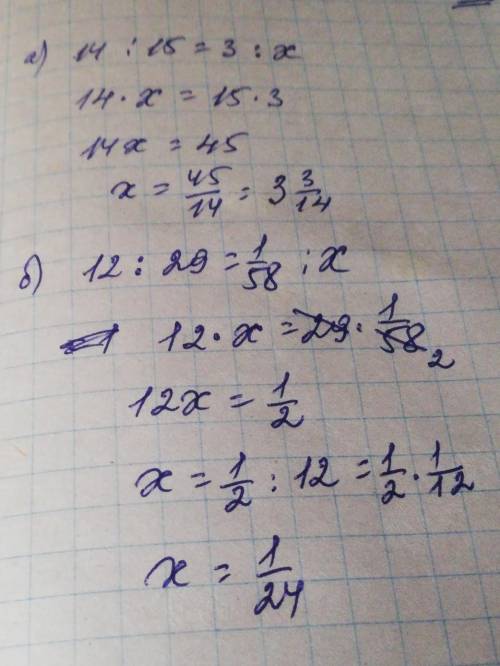 а) 14 : 15 = 3 : x
14 · x = 15 · 3
14x = 45
x = 45/14 = 3 3/14
б) 12 : 29 = 1/58 : x
12 · x = 29 · 1/58 2
12x = 1/2
x = 1/2 : 12 = 1/2 · 1/12
x = 1/24